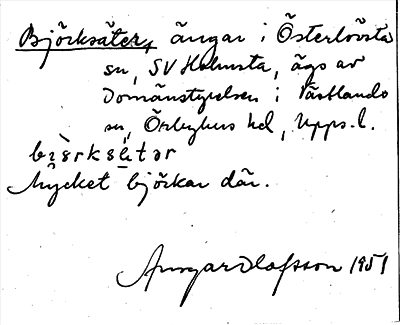 Björksäter, ängar i Österlövsta
sn, SV Holmsta, ägs av
Domänstyrelsen i Västlands
sn, Örbyhus hd, Upps. l.
bı̀ọrksẹ́tər
Mycket björkar där.
Ansgar Olofsson 1951